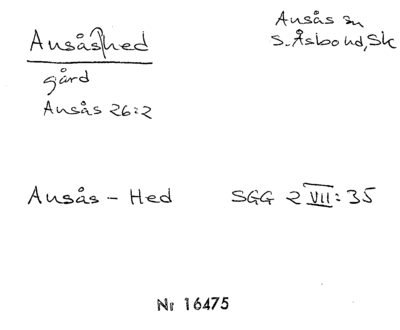 Ansås|hed
gård
Ansås 26:2
Ansås sn
S. Åsbo hd, Sk
Ansås - Hed SGG 2 VII: 35
Nr 16475